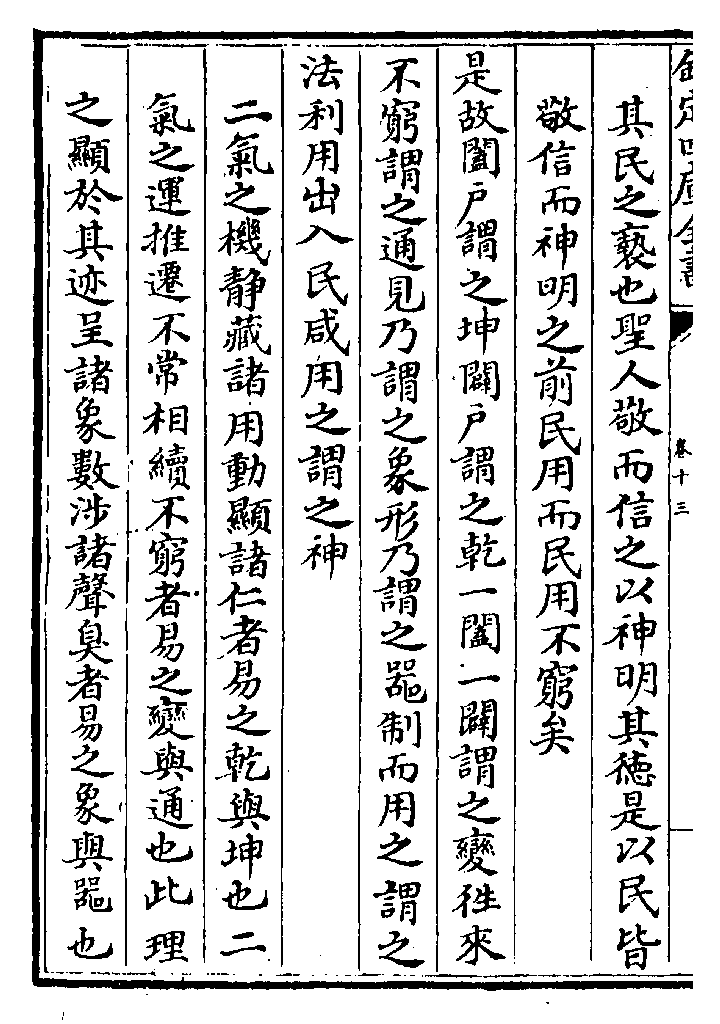 欽定四庫全書
卷十三
其民之褻也聖人敬而信之以神明其德是以民皆
敬信而神明之前民用而民用不窮矣
是故闔戶謂之坤闢戶謂之乾一闔一闢謂之變徃來
不窮謂之通見乃謂之象形乃謂之器制而用之謂之
法利用出入民咸用之謂之神
二氣之機靜藏諸用動顯諸仁者易之乾與坤也二
氣之運推遷不常相續不窮者易之變與通也此理
之顯於其迹呈諸象數涉諸聲臭者易之象與器也